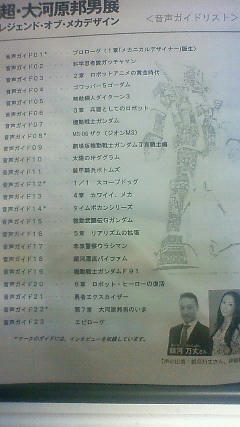 超・大河原邦男展
レジェンド・オブ・メカデザイン
<音声ガイドリスト>
音声ガイド01* プロローグ(1章「メカニカルデザイナー」誕生)
音声ガイド02 科学忍者隊ガッチャマン
音声ガイド03 2章 ロボットアニメの黄金時代
音声ガイド04 ゴワッパー5ゴーダム
音声ガイド05 無敵鋼人ダイターン3
音声ガイド06 3章 兵器としてのロボット
音声ガイド07 機動戦士ガンダム
音声ガイド08* MS-06 ザク(ジオンMS)
音声ガイド09 劇場版機動戦士ガンダム
音声ガイド10 太陽の牙ダグラム
音声ガイド11 装甲騎兵ボトムズ
音声ガイド12* 1/1 スコープドッグ
音声ガイド13 4章 カワイイ、メカ
音声ガイド14* タイムボカンシリーズ
音声ガイド15 機動武闘伝Gガンダム
音声ガイド16 5章 リアリズムの拡張
音声ガイド17 未来警察ウラシマン
音声ガイド18 銀河漂流バイファム
音声ガイド19 機動戦士ガンダムF91
音声ガイド20 6章 ロボット・ヒーローの復活
音声ガイド21 勇者エクスカイザー
音声ガイド22* 第7章 大河原邦男のいま
音声ガイド23 エピローグ
*マークのガイドには、インタビューを収録しています。
銀河 万丈さん